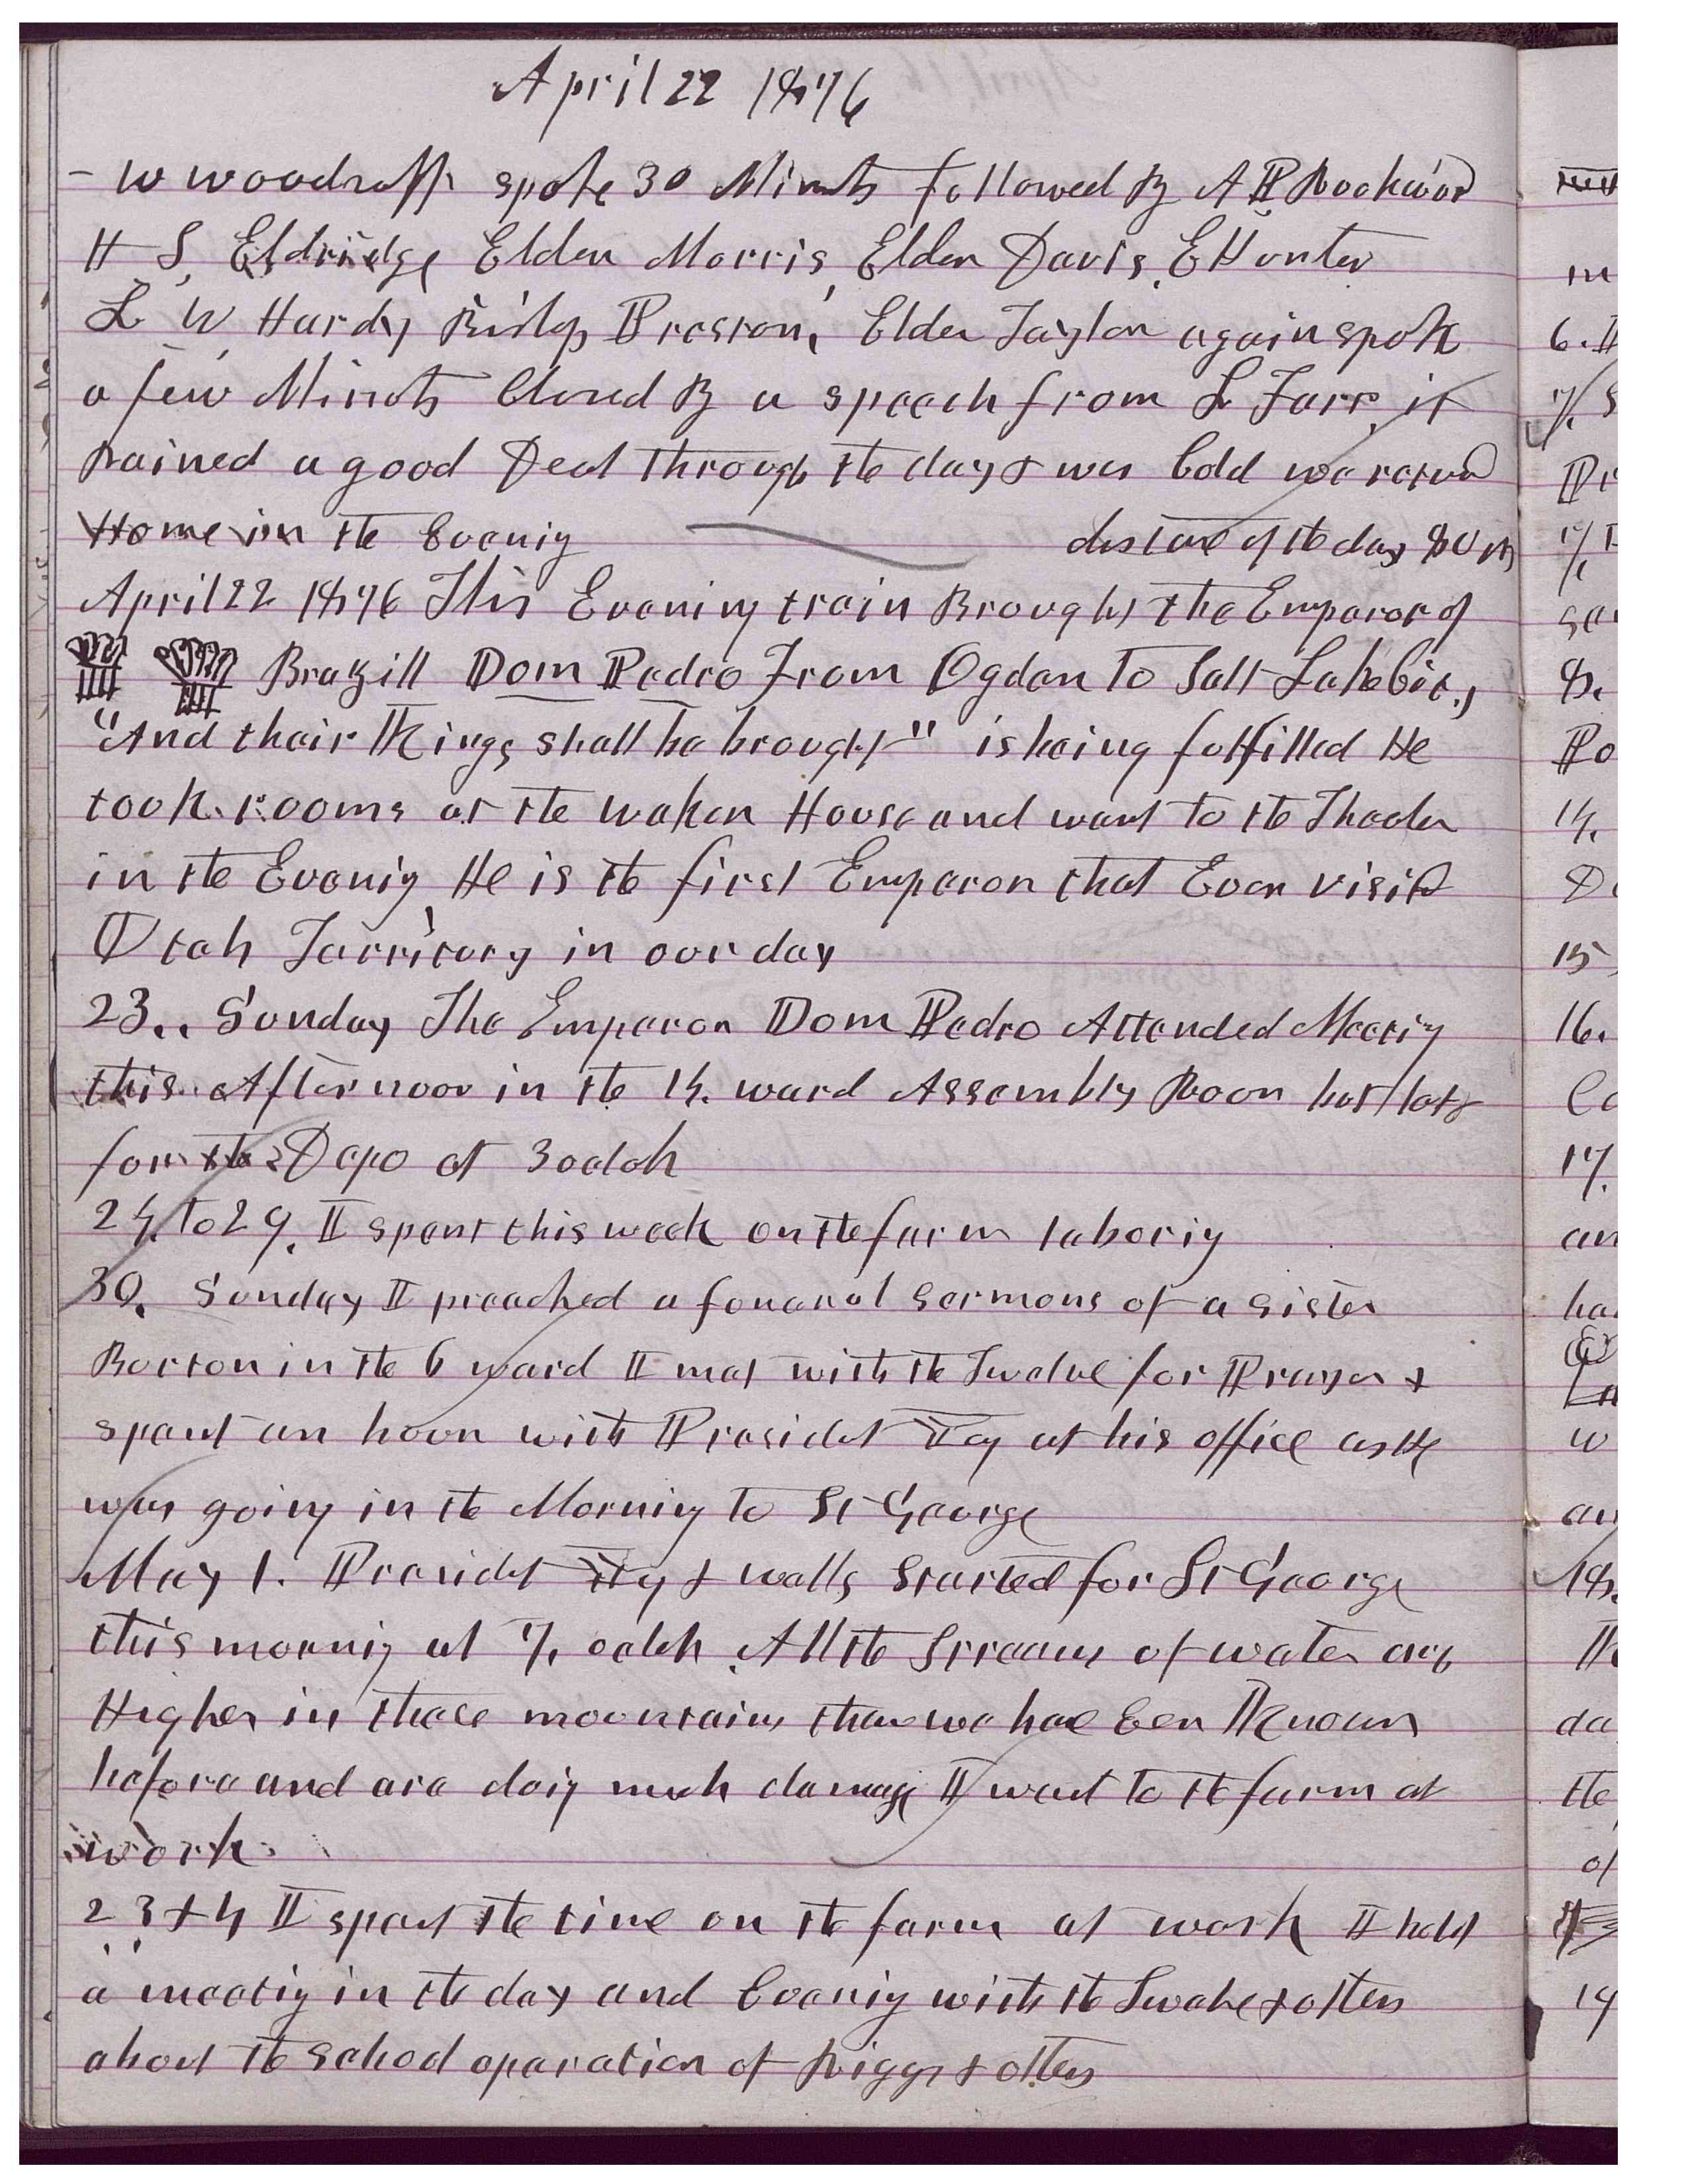 April 22 1876
- W Woodruff spoke 30 Minuts followed By A P Rockwod
H S, Eldridge Elder Morris, Elder Davis, E Hunter
L W Hardy Bishop Preston, Elder Taylor again spok
a few Minuts Closed By a speech from L Farr, it
Rained a good Deal through the day & was Cold we returnd
Home in the Evenig distance of the day 80 m
April 22 1876 This Evening train Brought the Emperor of
Brazill Dom Pedro From Ogden To Salt Lake City,
"And their Kings shall be brought" is being fulfilled He
took rooms at the Walker House and went to the Theater
in the Evenig He is the first Emperor that Ever visitd
Utah Territory in our day
23.. Sunday The Emperor Dom Pedro Attended Meetig
this Afternoon in the 14. ward Assembly Room but left
for the Depo at 3 oclok
24. to 29. I spent this week on the farm laborig
30. Sunday I preached a foneral sermons of a sister
Borton in the 6 ward I met with the Twelve for Prayer &
spent an hour with Presidet Yg at his office as He
was going in the Morning to St George
May 1. Presidet Yg & Wells Started for St George
this mornig at 7, oclok All the Streams of water are
Higher in these mountains than we have Ever Known
before and are doig much damage I went to the farm at
work
2 3 & 4 I spent the time on the farm at work I held
a meetig in the day and Evenig with the Twelve & others
about the school operation of Riggs & others